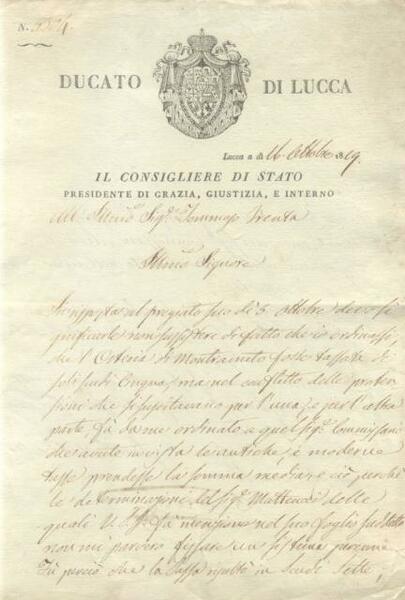 N. 
DUCATO DI LUCCA
Lucca a dì 16 Ottobre 1819.
IL CONSIGLIERE DI STATO
PRESIDENTE DI GRAZIA, GIUSTIZIA, E INTERNO
All' Illmo Sigr Tommaso Trenta
Illmo Signore
In risposta al pregiato suo di 5 ottobre devo si
gnificarle non sussistere di fatto che io ordinassi,
che l'Osteria di fosse tassata di
soli scudi cinque, ma nel conflitto delle preten
sioni che si portavano per l'una, e per l'altra
parte fù da me ordinato a quel Sigr Commissario
che avute in vista le antiche, e moderne
tasse prendesse la somma media, e ciò perchè
le determinazioni del Sigr Matteucci delle
quali V.S. fà menzione nel suo foglio suddetto
non mi parvero fissare un sistema perenne.
Fù perciò che la tassa in scudi sette,